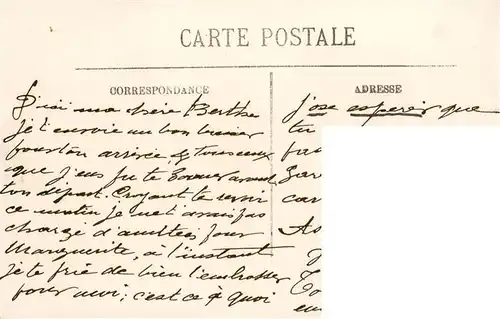 CARTE POSTALE
CORRESPONDANCE
ma chère Berthe
je t'envoie un bon baiser
pour ton arrivée &
que j'eus pu te donner avant
ton départ. Croyant te revoir
ce matin je ne t'avais pas
chargé d'amitiés pour
Marguerite, à l'instant
je te prie de bien l'embrasser
pour moi; c'est ce à quoi
ADRESSE
j'ose espérer que
tu